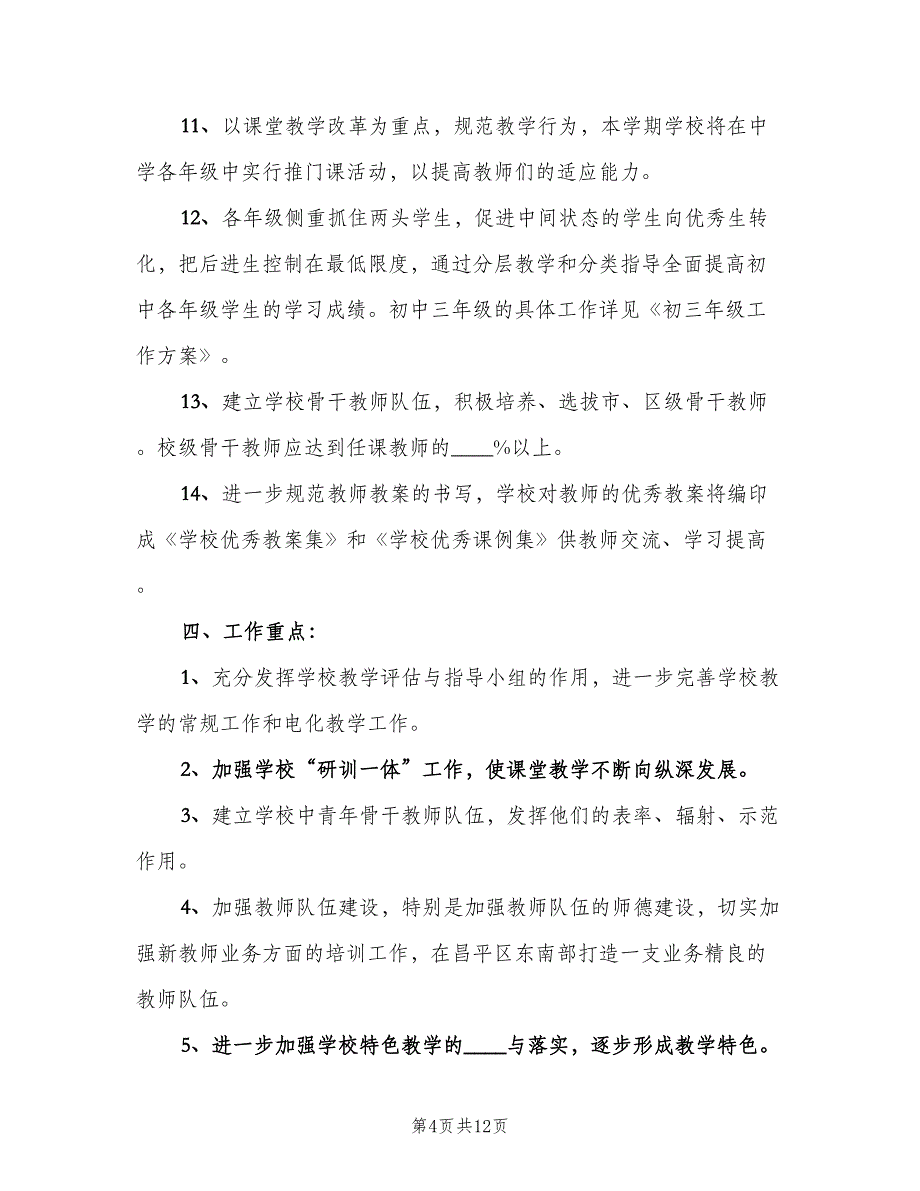 11、以课堂教学改革为重点，规范教学行为，本学期学校将在中
学各年级中实行推门课活动，以提高教师们的适应能力。
12、各年级侧重抓住两头学生，促进中间状态的学生向优秀生转
化，把后进生控制在最低限度，通过分层教学和分类指导全面提高初
中各年级学生的学习成绩。初中三年级的具体工作详见《初三年级工
作方案》。
13、建立学校骨干教师队伍，积极培养、选拔市、区级骨干教师
。校级骨干教师应达到任课教师的____%以上。
14、进一步规范教师教案的书写，学校对教师的优秀教案将编印
成《学校优秀教案集》和《学校优秀课例集》供教师交流、学习提高
。
四、工作重点：
1、充分发挥学校教学评估与指导小组的作用，进一步完善学校教
学的常规工作和电化教学工作。
2、加强学校“研训一体”工作，使课堂教学不断向纵深发展。
3、建立学校中青年骨干教师队伍，发挥他们的表率、辐射、示范
作用。
4、加强教师队伍建设，特别是加强教师队伍的师德建设，切实加
强新教师业务方面的培训工作，在昌平区东南部打造一支业务精良的
教师队伍。
5、进一步加强学校特色教学的____与落实，逐步形成教学特色。
第4页共12页